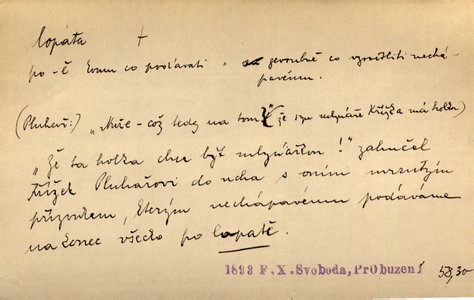 lopata +
po -ě komu co podávati = zevrubně co vysvětliti nechá-
pavému.
(Pluhař:) „Nuže - což tedy na tom že syn mlynáře Křížka má holku)
„Že ta holka chce být mlynářkou!" zahučel
Křížek Pluhařovi do ucha s oním mrzutým
přízvukem, kterým nechápavému podáváme
na konec všecko po lopatě.
1893 F.X.Svoboda, Probuzení 58,30